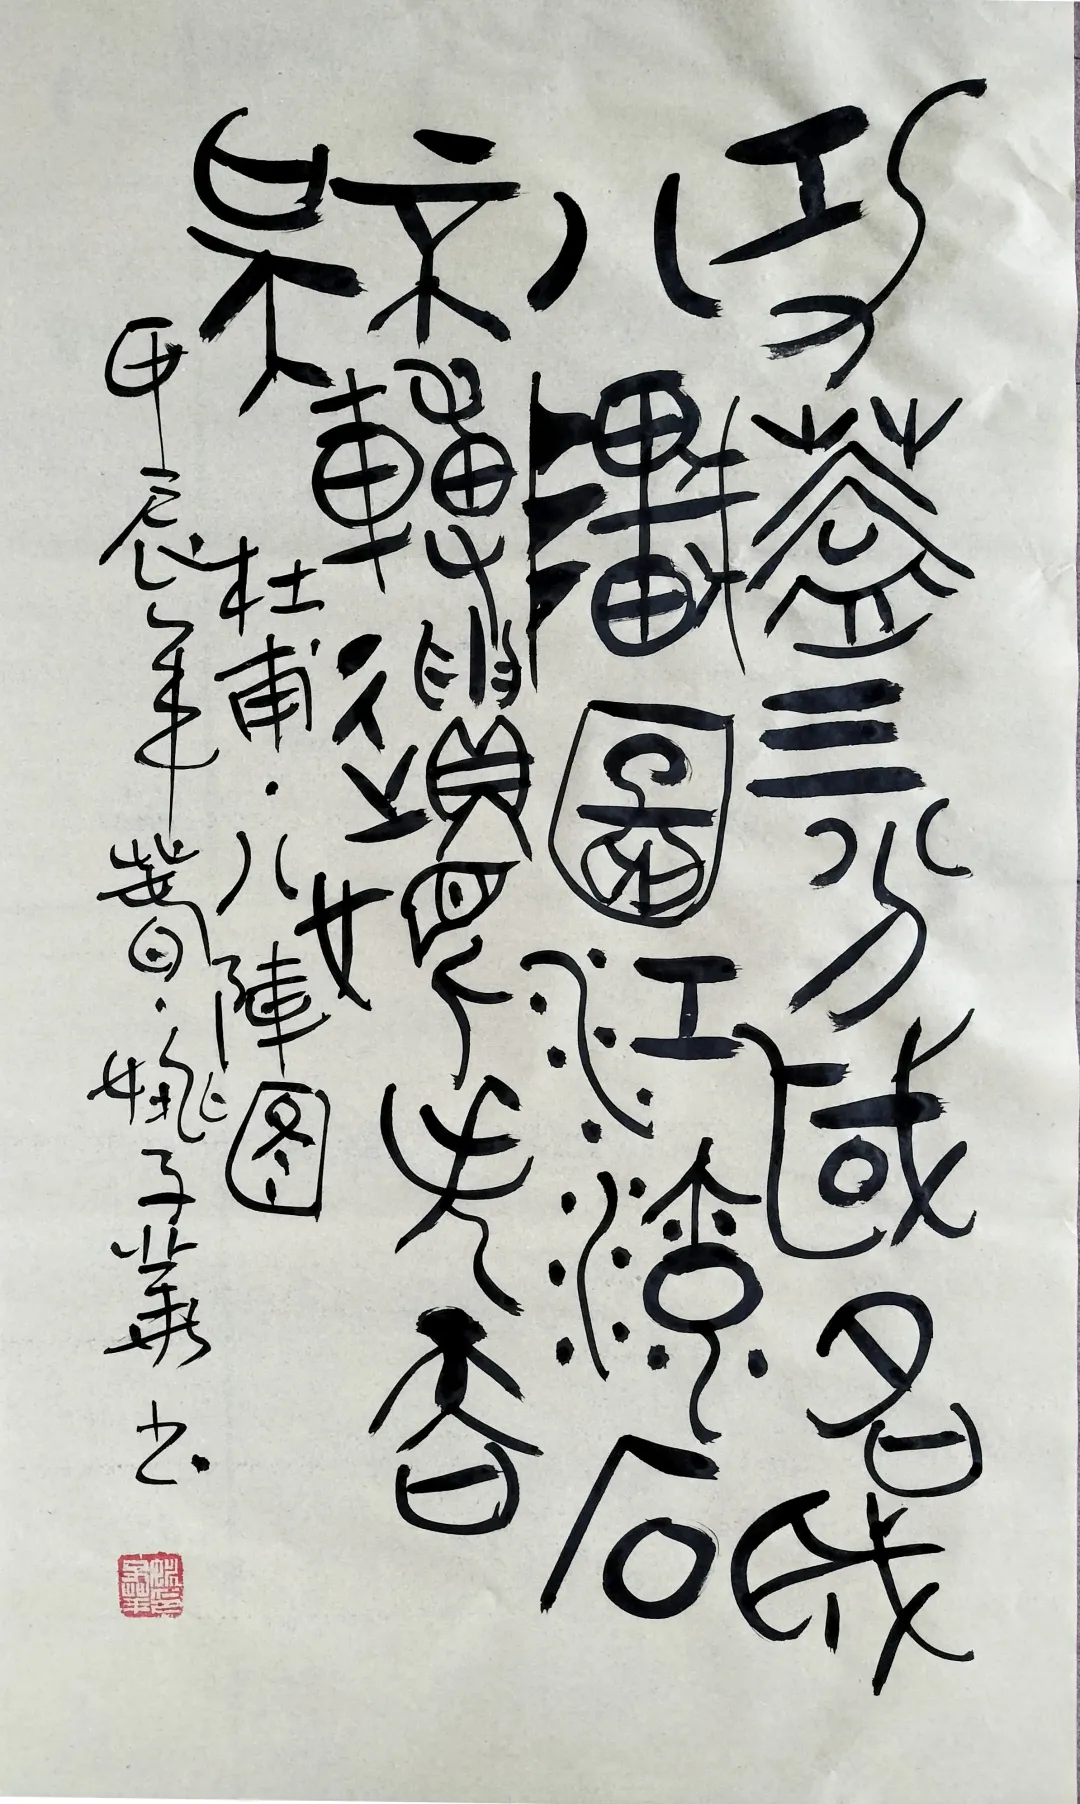 功蓋三分國名成
八陣圖江流石
不轉遺恨失吞
吳
杜甫·八陣图
甲辰年·姚子華书